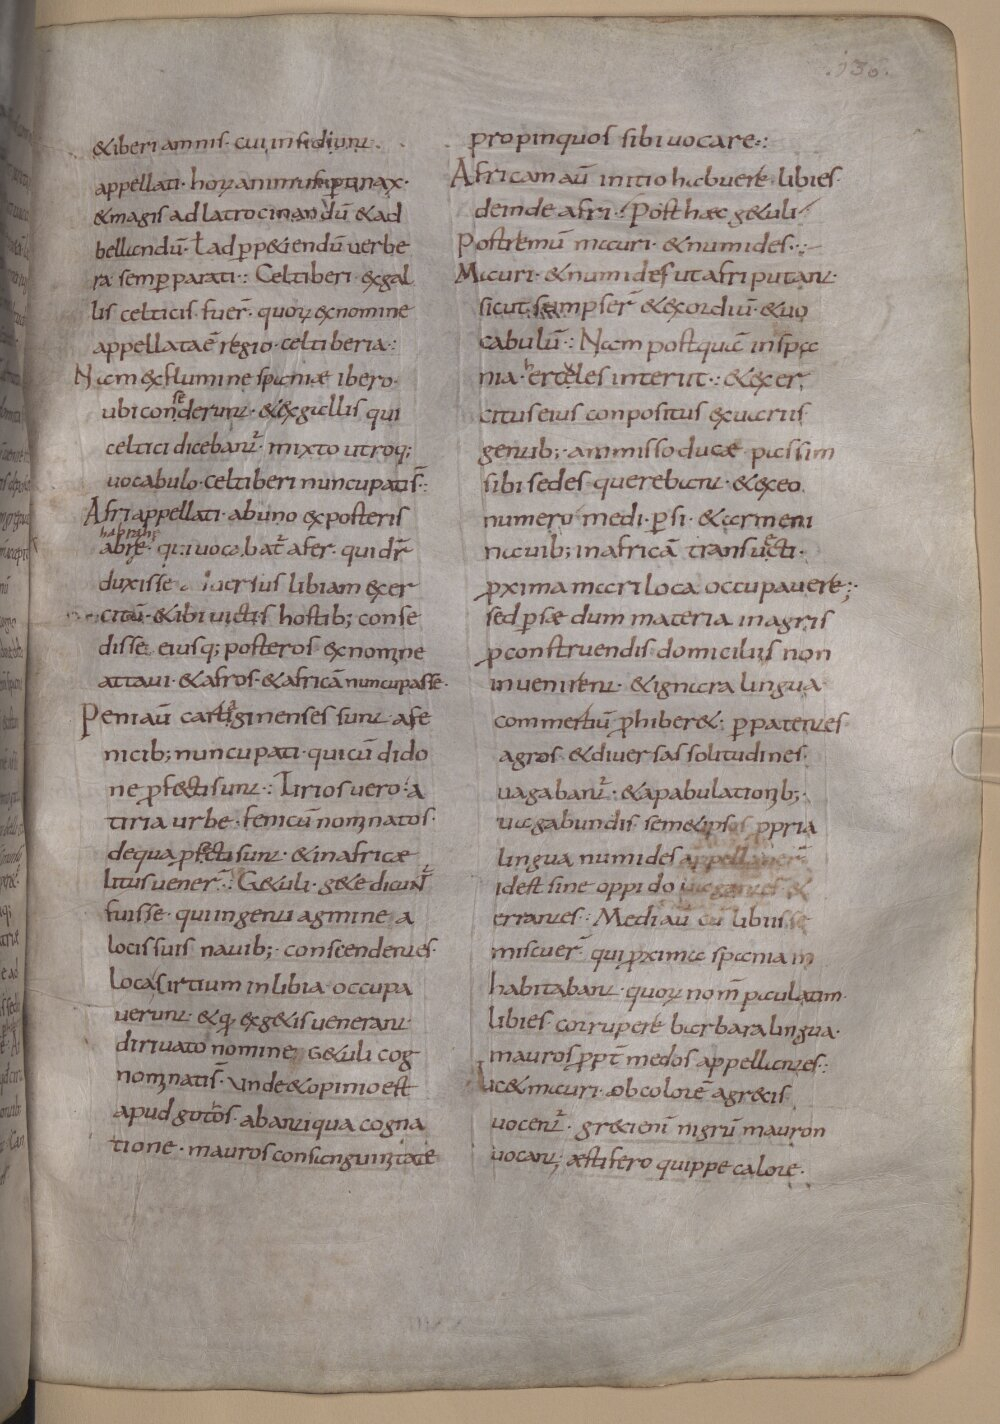 .130.
&iberi amnis· cui insidiunt
appellati· hoꝝ animus ꝑtinax·
& magis ad latrocinandū & ad
bellandū· ł ad ꝑp&iendū verbe
ra semꝑ parati·: Celtiberi· ex gal
lis celticis fuer̄· quoꝝ ex nomine
appellata ē regio· celtiberia·:
Nam ex flumine spaniæ ibero·
ubi conderunt· & ex gallis qui
se
celtici dicebant̄· mixto utroq;
uocabulo· celtiberi nuncupati s̄·:
Afri appellati· ab uno ex posteris
habrahę
abre· qui uocabat̄ afer· qui dr̄
duxisse libiam exer
citū· & ibi uictis hostib; conse
disse· eiusq; posteros ex nomne
attaui· & afros· & africā nuncupasse·
Peni aū cartaginenses sunt a fe
nicib; nuncupati· qui cū dido
ne ꝓfecti sunt·: Tirios uero· a
tiria urbe· fenicū nomnatos·
de qua ꝓfecti sunt· & in africæ
litus uener̄·: G&uli· g&e dicunt̄
fuisse· qui ingenti agmine a
locis suis nauib;· conscendentes·
loca sirtium in libia· occupa
uerunt· & q̨ ex g&is uenerant·
diriuato nomine G&uli cog
nomnati s̄· unde & opinio est
apud gotos· ab antiqua cogna
tione· mauros consanguinitate
propinquos sibi uocare·:
Africam aū initio habuere libies·
deinde afri·/ Post hæc g&uli·
Postremū mauri· & numides·:
Mauri· & numides ut afri putant·
sicut semp ser̄ & exordiū· & uo
cabulū·: Nam postquā in spa
nia· hercules interiit·: & exer
citus eius conpositus ex uariis
gentib;· ammisso ducæ· passim
sibi sedes querebant· & ex eo
numero medi· ꝑsi· & armeni
nauib; in africā transuecti·
ꝓxima mari loca occupauere·:
sed ꝑsæ dum materia in agris
ꝓ construendis domiciliis non
inuenirent· & ignara lingua
commertiū ꝓhiber&· ꝑ patentes·
agros· & diuersas solitudines·
uagabant̄· & a pabulationb;·
uagabundis· semetipsos ꝓpria
lingua numides appellauer̄·
id est sine oppido uagantes &
errantes·: Medi aū cū libiis se
miscuer̄· qui ꝓxima spania m
habitabant· quoꝝ nom̄ paulatim·
libies· corrupere barbara lingua·
mauros ꝓpt̄ medos appellantes·:
Lic& mauri· ob colorē a grecis
uocent̄· greci enī nigrū mauron
uocant; æstifero quippe calore·